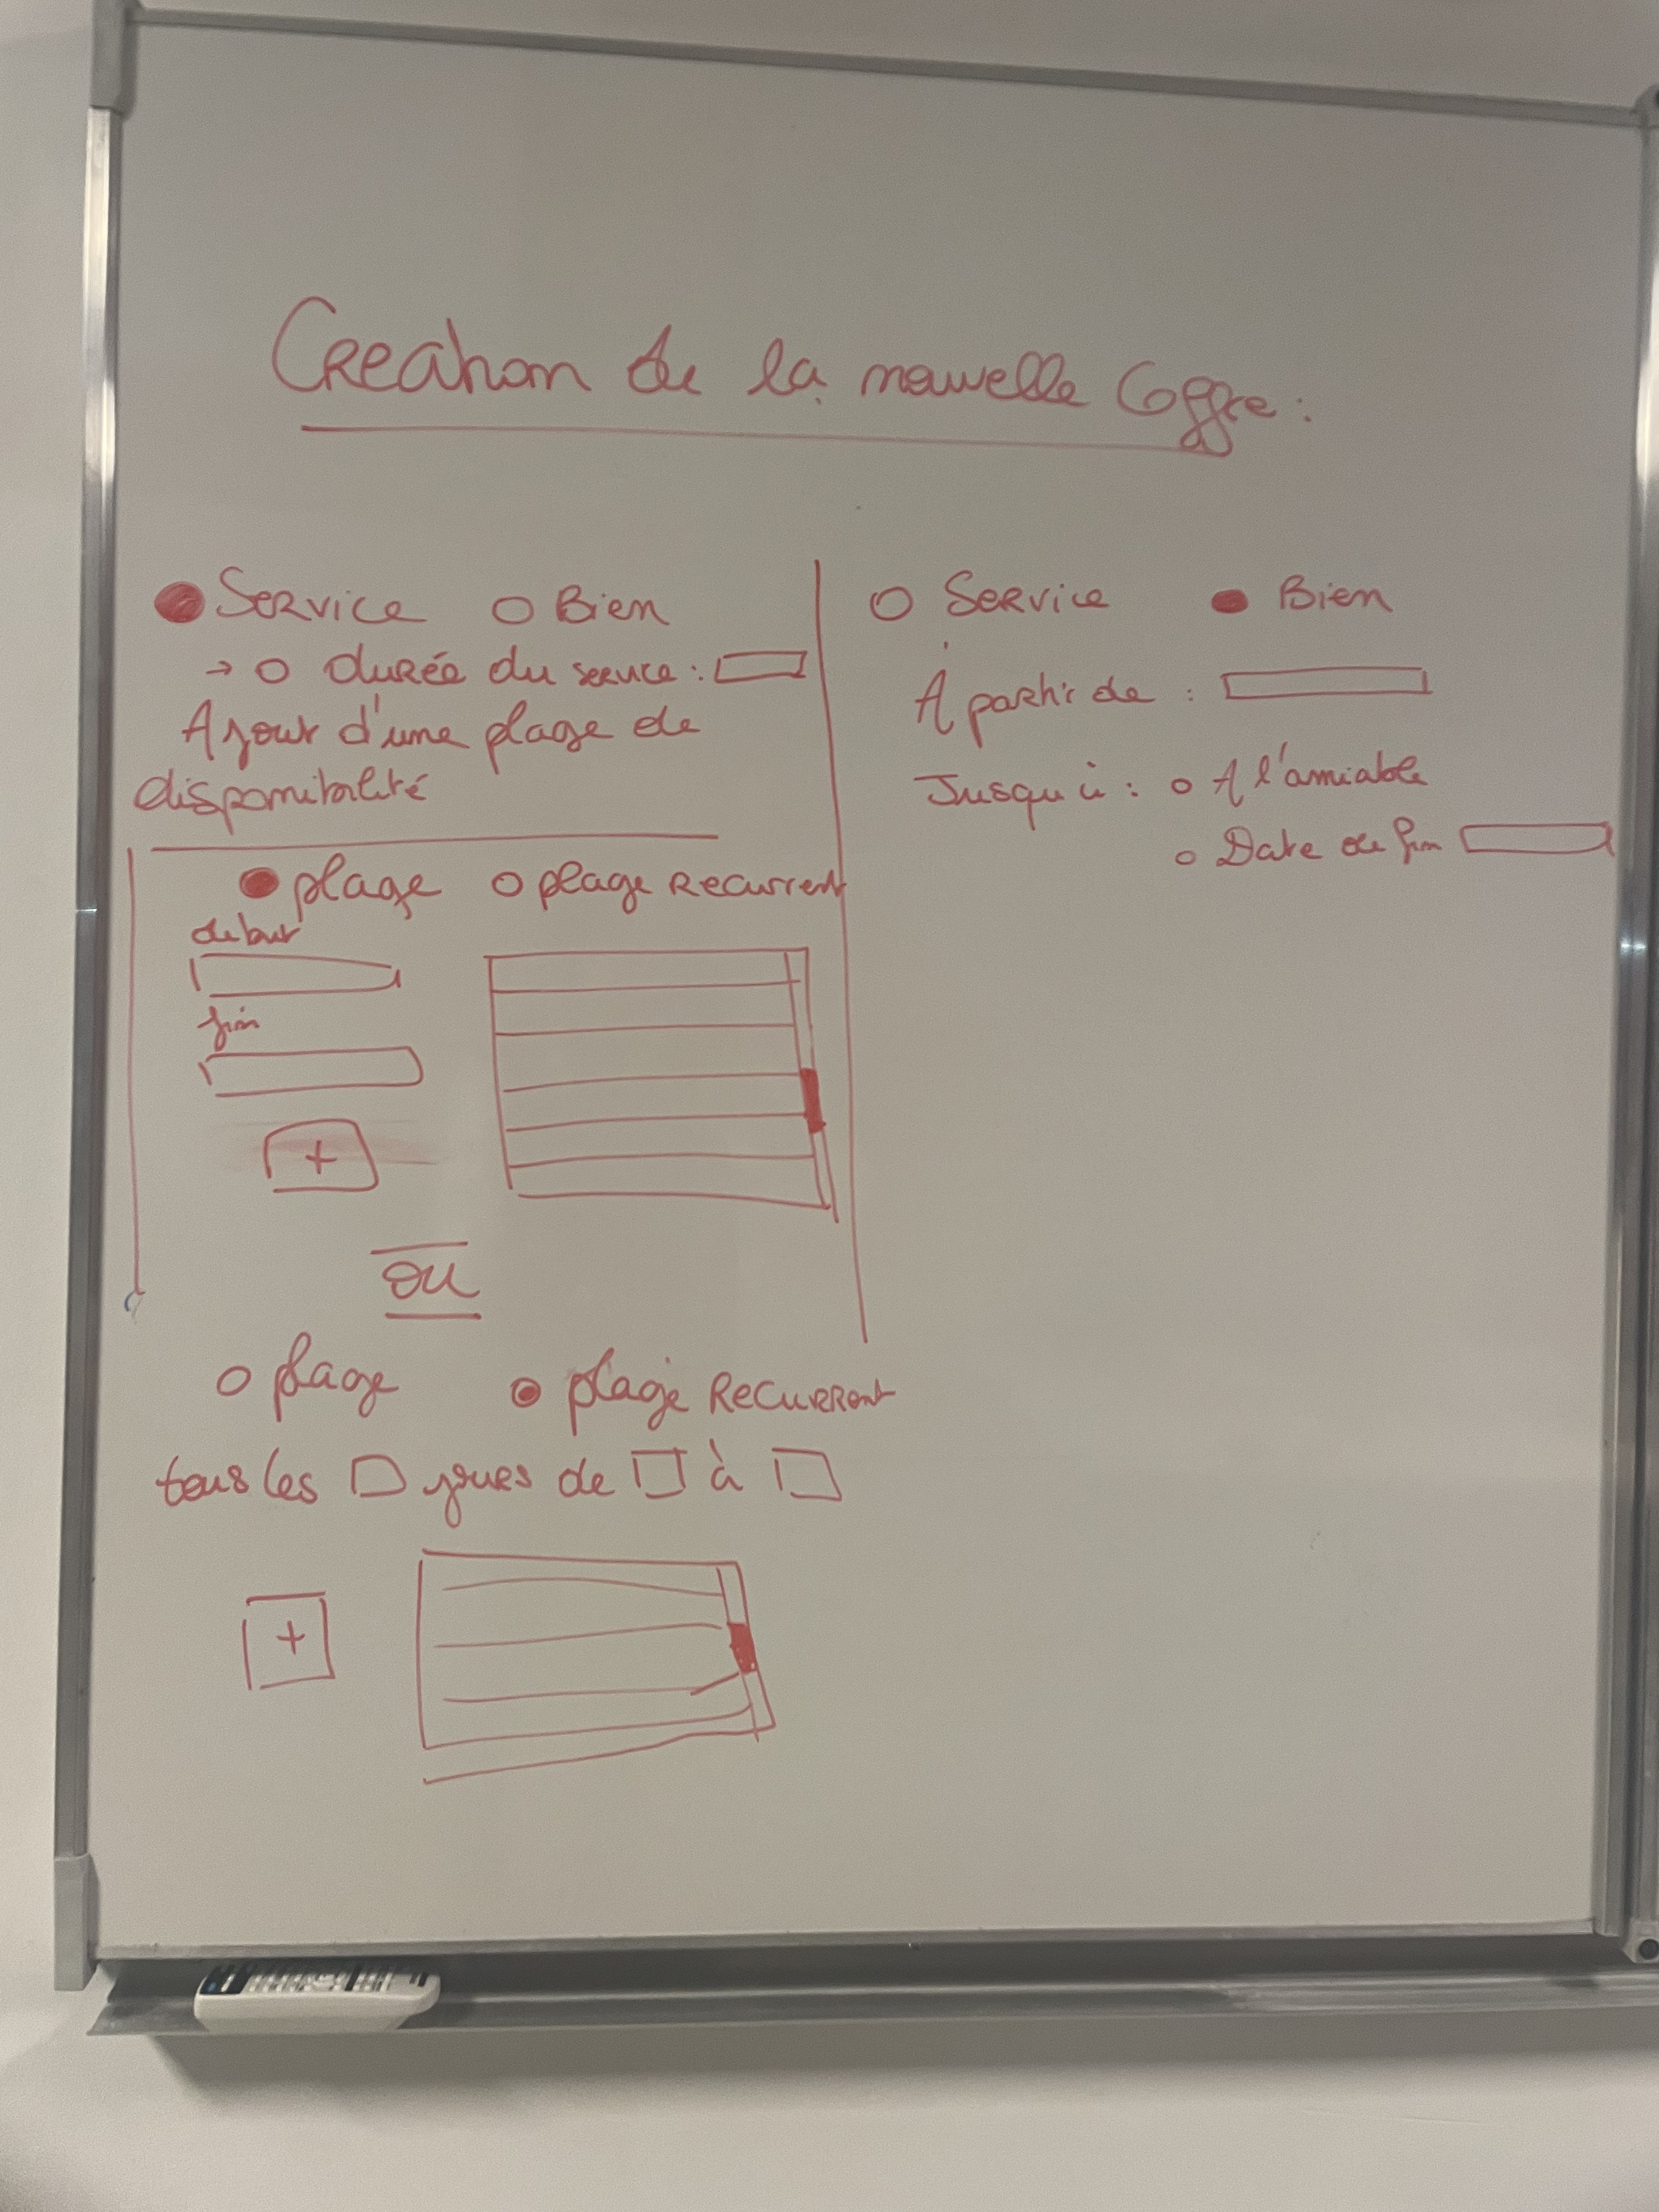 Creation de la nouvelle Offre :
Service Bien
→ durée du service :
Ajout d'une plage de
disponibilité
plage plage Recurrent
debut
fin
+
ou
plage plage Recurrent
tous les jours de à
+
Service Bien
A partir de :
Jusqu'à : A l'amiable
Date de fin